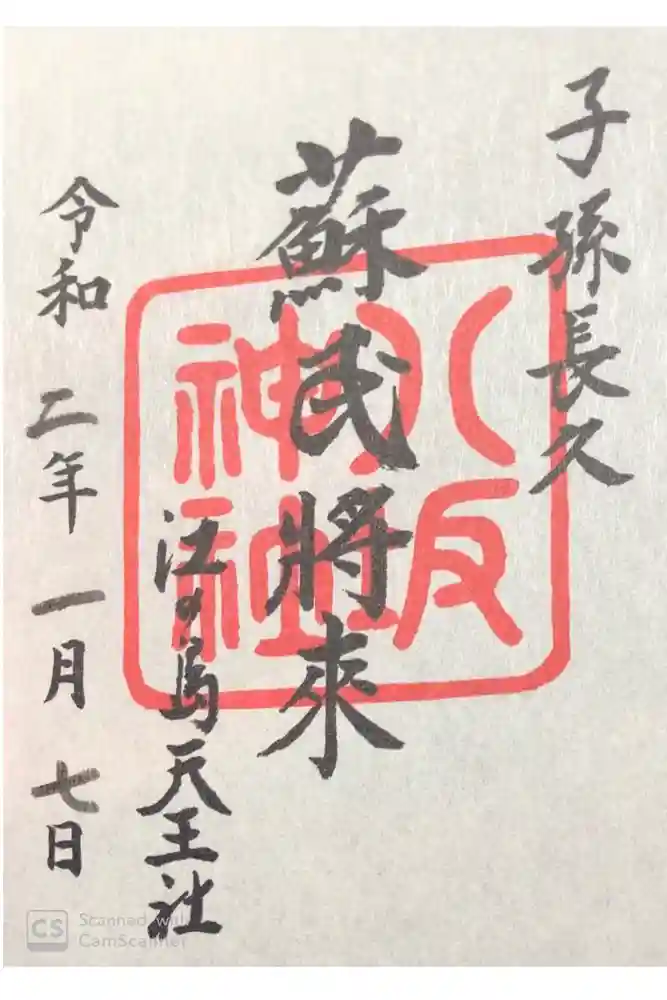 子孫長久
蘇民將來
八坂
神社
江の島天王社
令和 二年 一月 七日
CS Scanned with
CamScanner